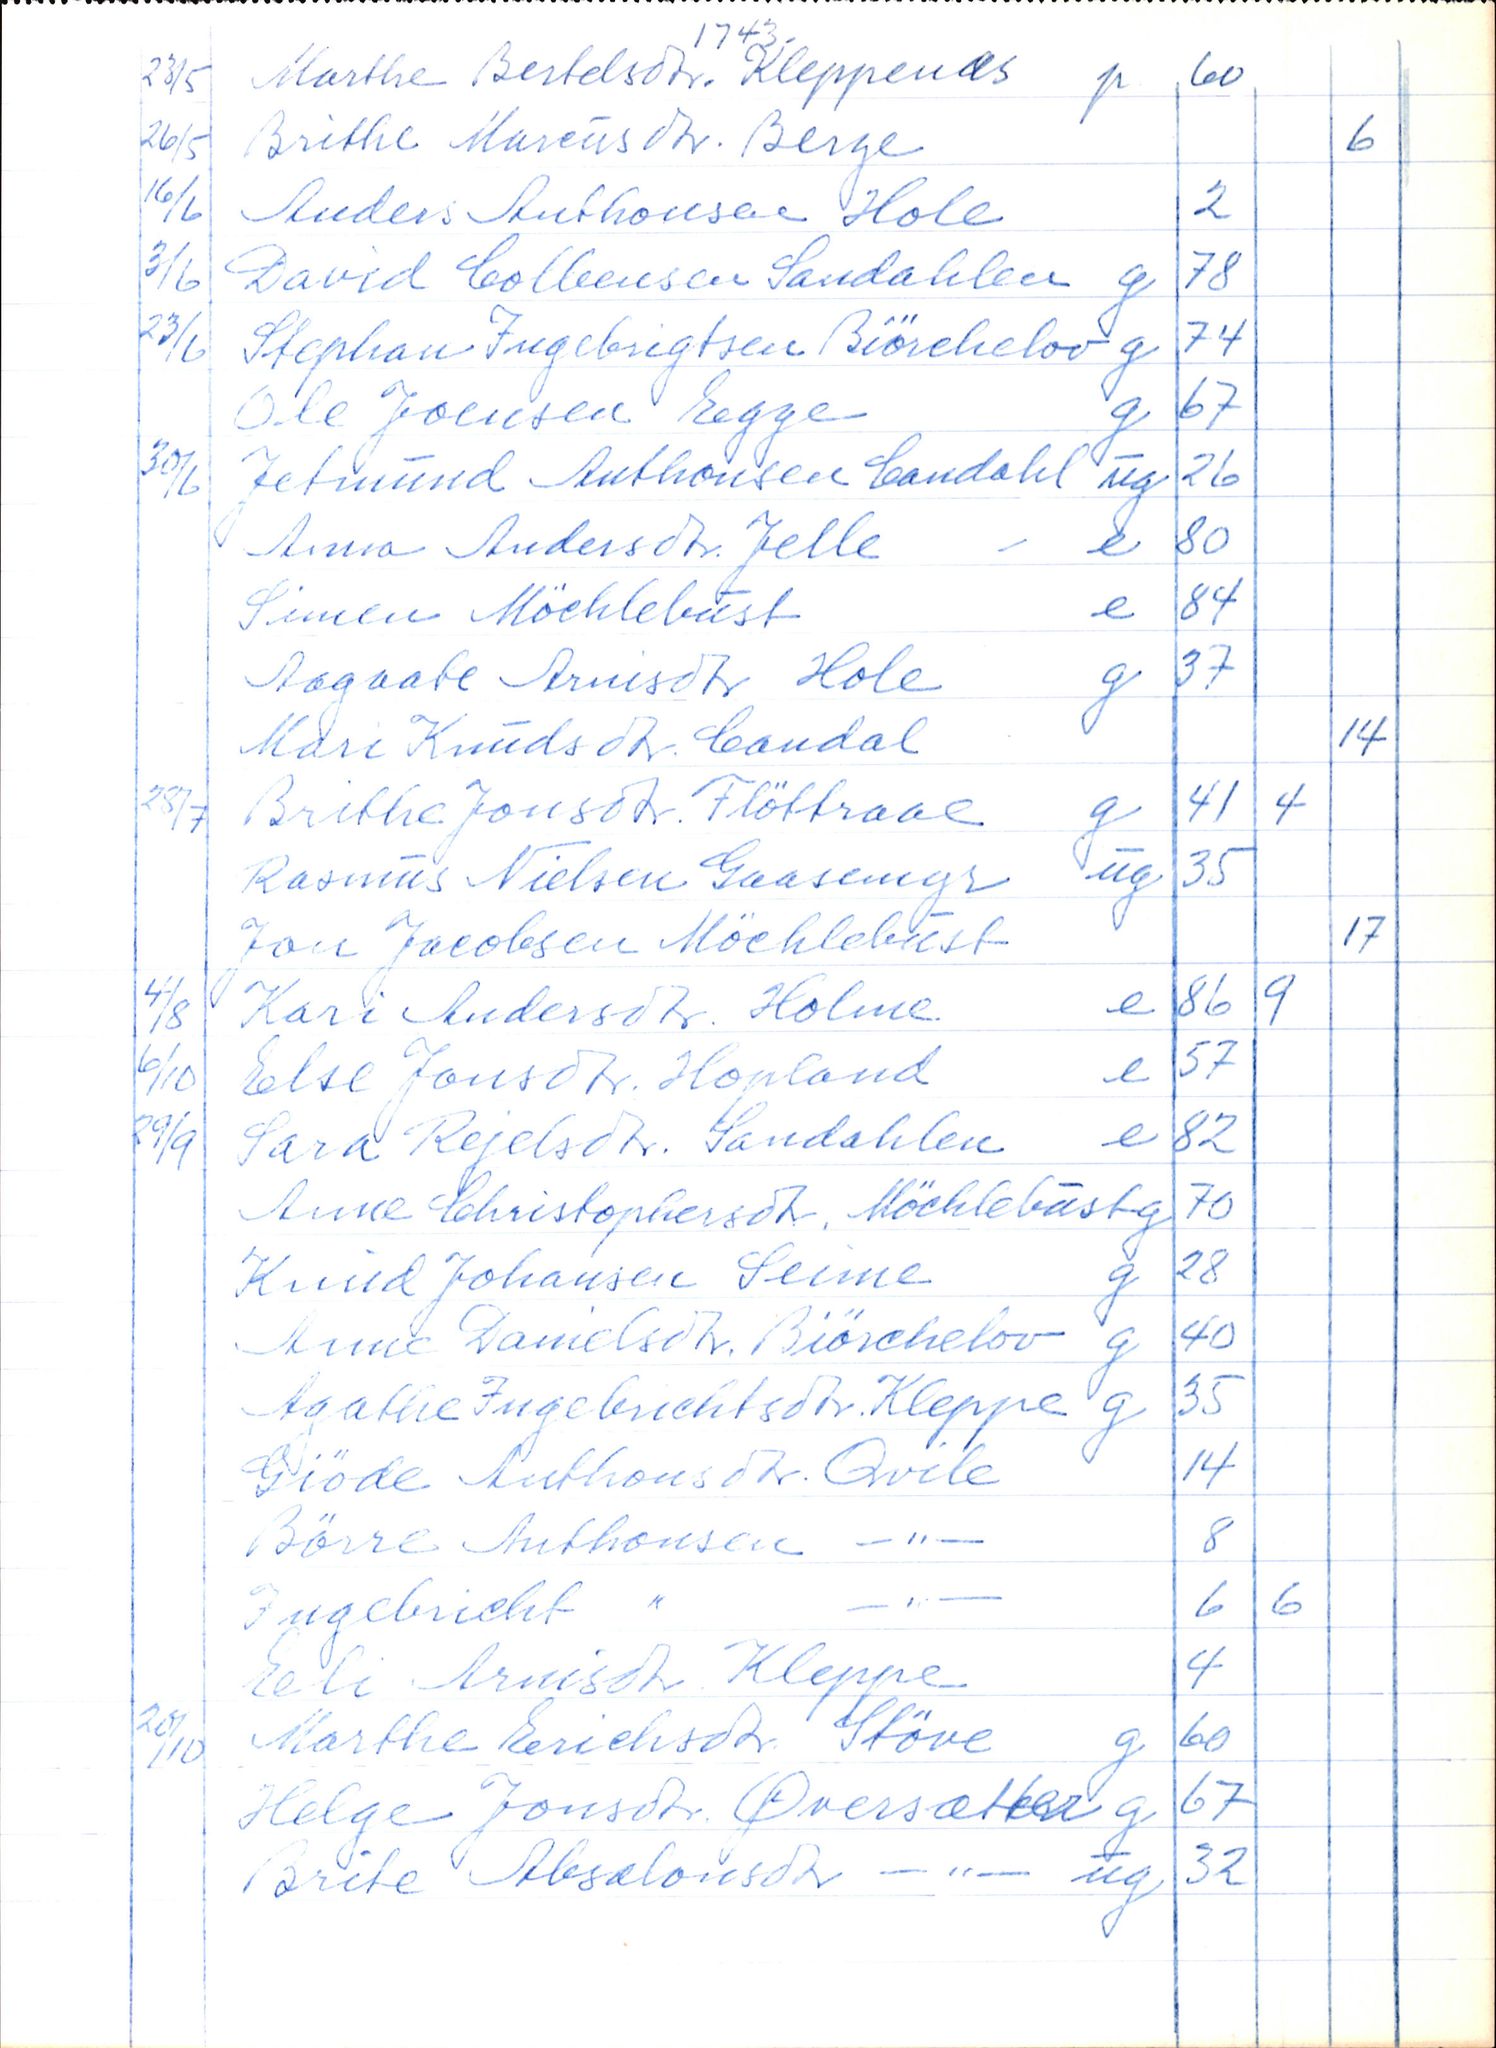 1743.
23/5 Marthe Bertelsdtr. Kleppenæs p 60
26/5 Brithe Marcusdtr. Berge 6
16/6 Anders Anthonsen Hole 2
3/6 David Colbensen Sandahlen g 78
23/6 Stephan Ingebrigtsen Biörchelov g 74
Ole Joensen Egge g 67
30/6 Jetmund Anthonsen Candahl ug 26
Anna Andersdtr. Jelle - e 80
Simen Möchlebust e 84
Aagaate Arnisdtr Hole g 37
Mari Knudsdtr. Candal 14
28/7 Brithe Jonsdtr. Flöttraae g 41 4
Rasmus Nielsen Gaasemyr ug 35
Jon Jacobsen Möchlebust 17
4/8 Kari Andersdtr. Holme e 86 9
6/10 Else Jonsdtr. Hopland e 57
29/9 Sara Rejelsdtr. Sandahlen e 82
Anne Christophersdtr. Möchlebust g 70
Knud Johansen Seime g 28
Anne Danielsdtr. Biörchelov g 40
Agathe Ingebrichtsdtr. Kleppe g 35
Giöde Anthonsdtr. Qvile 14
Börre Anthonsen -"- 8
Ingebricht " -"- 6 6
Eeli Arnisdtr. Kleppe 4
20/10 Marthe Erichsdtr. Stöve g 60
Helge Jonsdtr. Øversætter g 67
Brite Absalonsdtr -"- ug 32